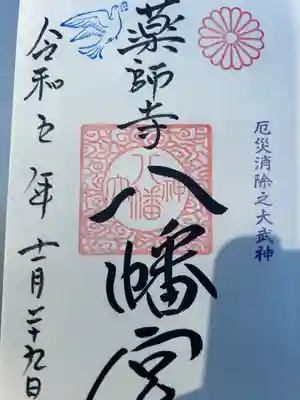 厄災消除之大武神
薬師寺八幡宮
八幡大神
令和五年十一月二十九日